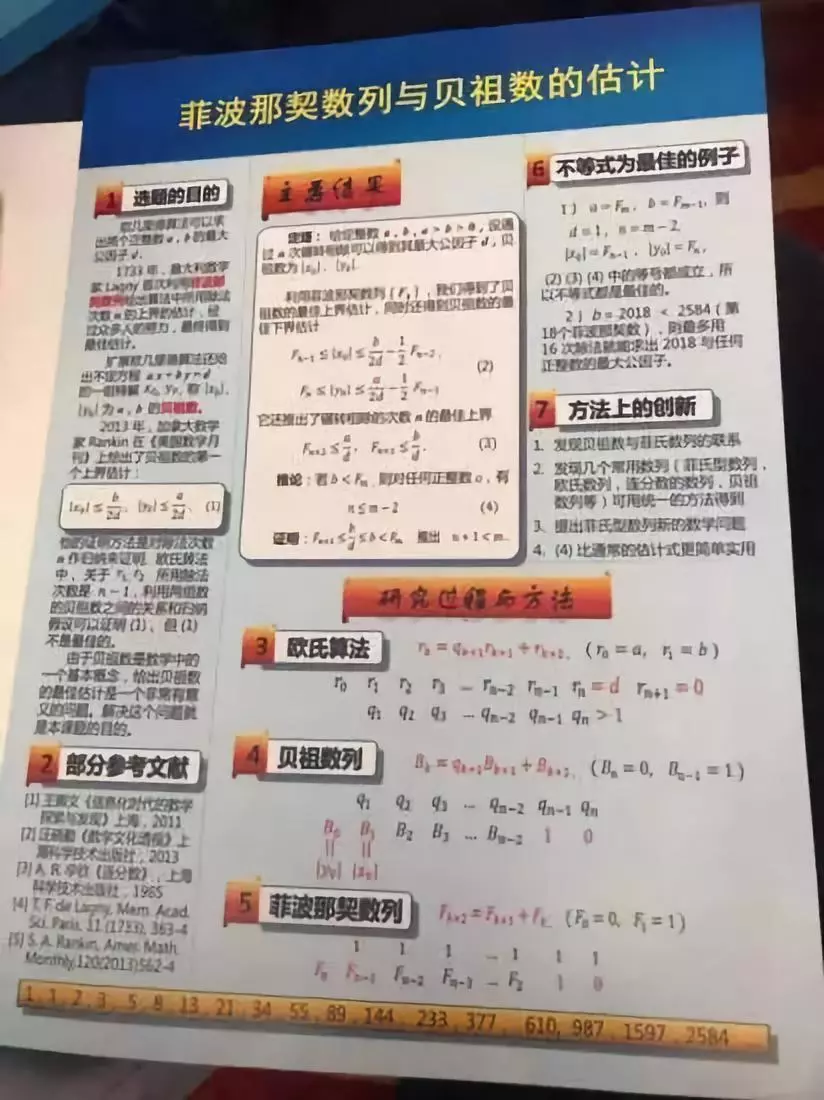 菲波那契数列与贝祖数的估计
1 选题的目的
欧几里得算法可以求
出两个正整数 a , b 的最大
公因子 d.
1733 年，意大利数学
家 Lagny 首次利用菲波那
契数列给出算法中所用除法
次数 n 的上界的估计，经
过众多人的努力，最终得到
最佳估计。
扩展欧几里得算法还给
出不定方程 ax + by = d
的一组特解 x₀, y₀, 称 |x₀|,
|y₀| 为 a , b 的贝祖数。
2013 年，加拿大数学
家 Rankin 在《美国数学月
刊》上给出了贝祖数的第一
个上界估计：
|x₀| ≤ b/2d, |y₀| ≤ a/2d, (1)
他的证明方法是对除法次数
n 作归纳来证明. 欧氏算法
中，关于 r₁, r₂ 所用除法
次数是 n − 1，利用两组数
的贝祖数之间的关系和归纳
假设可以证明 (1)、但 (1)
不是最佳的。
由于贝祖数是数学中的
一个基本概念，给出贝祖数
的最佳估计是一个非常有意
义的问题。解决这个问题就
是本课题的目的。
2 部分参考文献
[1] 王 《信息化时代的数学
探索与发现》上海，2011
[2] 《数学文化透视》上
海科学技术出版社，2013
[3] A. 《连分数》，上海
科学技术出版社，1985
[4] T. F. de Lagny, Mem. Acad.
Sci. Paris, 11 (1733), 363-4
[5] S. A. Rankin, Amer. Math.
Monthly,120(2013)562-4
主要结果
定理：给定整数 a , b , a > b > 0，设通
过 n 次辗转相除可以得到其最大公因子 d，贝
祖数为 |x₀|, |y₀|.
利用菲波那契数列 {Fₖ}，我们得到了贝
祖数的最佳上界估计，同时还得到贝祖数的最
佳下界估计
Fₙ₋₁ ≤ |x₀| ≤ b/d − 1/2 Fₙ₋₂,
(2)
Fₙ ≤ |y₀| ≤ a/d − 1/2 Fₙ₋₁
它还推出了辗转相除的次数 n 的最佳上界
Fₙ₊₂ ≤ a/d, Fₙ₊₁ ≤ b/d. (3)
推论：若 b < Fₘ, 则对任何正整数 a，有
n ≤ m − 2 (4)
证明：Fₙ₊₁ ≤ b/d ≤ b < Fₘ 推出 n + 1 < m.
6 不等式为最佳的例子
1) a = Fₘ, b = Fₘ₋₁, 则
d = 1, n = m − 2,
|x₀| = Fₙ₋₁, |y₀| = Fₙ,
(2) (3) (4) 中的等号都成立，所
以不等式都是最佳的。
2) b = 2018 < 2584 (第
18个菲波那契数)，则最多用
16 次除法就能求出 2018 与任何
正整数的最大公因子。
7 方法上的创新
1. 发现贝祖数与菲氏数列的联系
2. 发现几个常用数列（菲氏型数列，
欧氏数列，连分数的数列，贝祖
数列等）可用统一的方法得到
3. 提出菲氏型数列新的数学问题
4. (4) 比通常的估计式更简单实用
研究过程与方法
3 欧氏算法 rₖ = qₖ₊₁rₖ₊₁ + rₖ₊₂, (r₀ = a, r₁ = b)
r₀ r₁ r₂ r₃ ... rₙ₋₂ rₙ₋₁ rₙ = d rₙ₊₁ = 0
q₁ q₂ q₃ ... qₙ₋₂ qₙ₋₁ qₙ > 1
4 贝祖数列 Bₖ = qₖ₊₁Bₖ₊₁ + Bₖ₊₂, (Bₙ = 0, Bₙ₋₁ = 1)
q₁ q₂ q₃ ... qₙ₋₂ qₙ₋₁ qₙ
B₀ B₁ B₂ B₃ ... Bₙ₋₂ 1 0
|| ||
|y₀| |x₀|
5 菲波那契数列 Fₖ₊₂ = Fₖ₊₁ + Fₖ, (F₀ = 0, F₁ = 1)
1 1 1 ... 1 1 1
Fₙ Fₙ₋₁ Fₙ₋₂ Fₙ₋₃ ... F₂ 1 0
1 , 1 , 2 , 3 , 5 , 8 , 13 , 21 , 34 , 55 , 89 , 144 , 233 , 377 , 610, 987 , 1597 , 2584